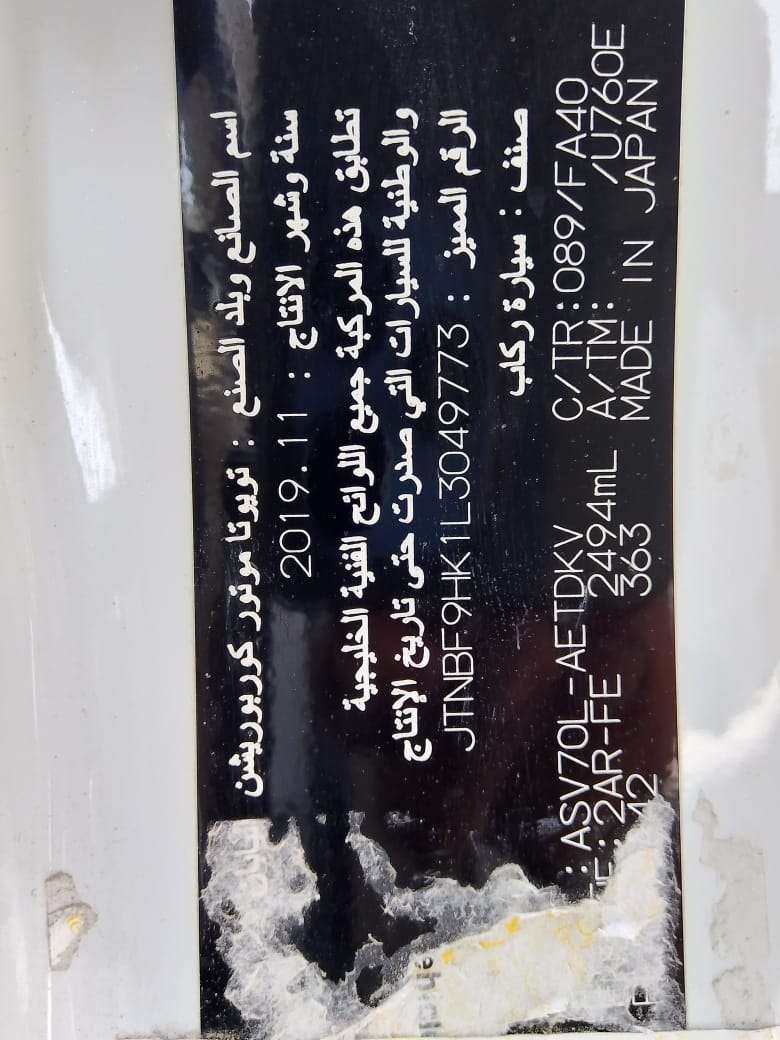 اسم الصانع وبلد الصنع : تويوتا موتور كوربوريشن
سنة وشهر الانتاج : 2019.11
تطابق هذه المركبة جميع اللوائح الفنية الخليجية
والوطنية للسيارات التي صدرت حتى تاريخ الإنتاج
الرقم المميز : JTNBF9HK1L3049773
صنف : سيارة ركاب
: ASV70L-AETDKV C/TR:089/FA40
: 2AR-FE 2494mL A/TM: /U760E
42 363 MADE IN JAPAN